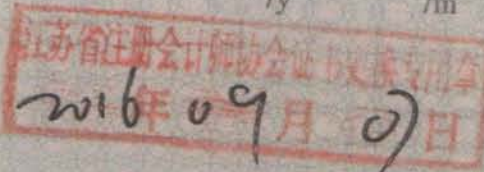 /y /m
江苏省注册会计师协会证书更换专用章
2016年09月07日